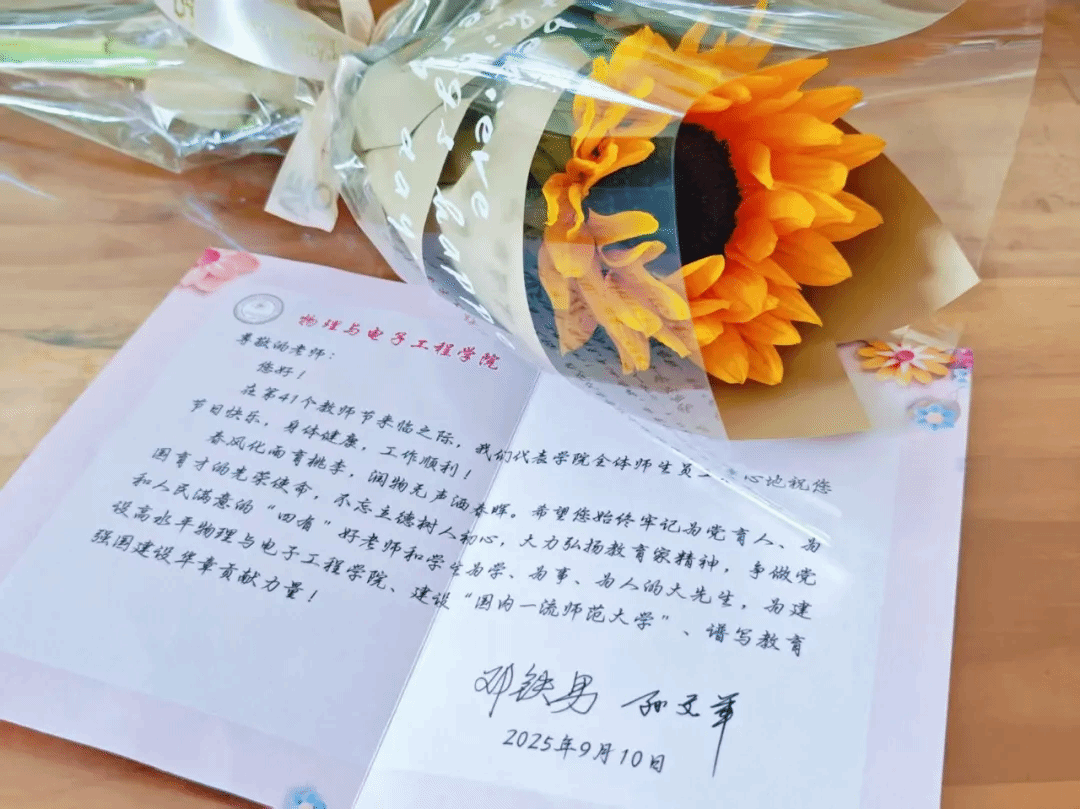 物理与电子工程学院
尊敬的老师：
您好！
在第41个教师节来临之际，我们代表学院全体师生员 心地祝您
节日快乐，身体健康，工作顺利！
春风化雨育桃李，润物无声洒春晖。希望您始终牢记为党育人、为
国育才的光荣使命，不忘立德树人初心，大力弘扬教育家精神，争做党
和人民满意的“四有”好老师和学生为学、为事、为人的大先生，为建
设高水平物理与电子工程学院、建设“国内一流师范大学”、谱写教育
强国建设华章贡献力量！
邓铁男 孙文军
2025年9月10日